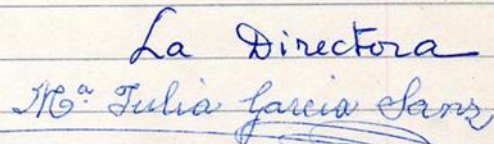 La Directora
Mª Julia García Sanz